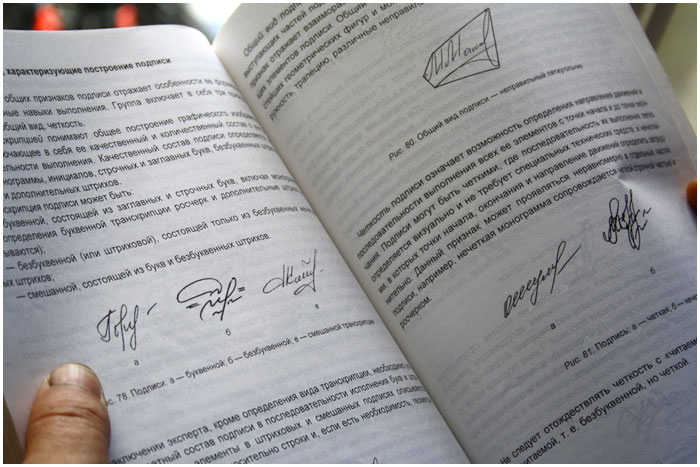 , характеризующие построение подписи
общих признаков подписи отражает особенности ее
ные навыки выполнения. Группа включает в себя три
общий вид, четкость.
скрипцией понимают общее построение графического
ючающее в себя ее качественный и количественный состав
тельности выполнения. Качественный состав подписи
нограммы, инициалов, строчных и заглавных букв, безбуквенных
и дополнительных штрихов.
скрипция подписи может быть:
буквенной, состоящей из заглавных и строчных букв, включая
определения буквенной транскрипции росчерк и дополнительные
ываются);
— безбуквенной (или штриховой), состоящей только из безбуквенных
ных штрихов;
— смешанной, состоящей из букв и безбуквенных штрихов.
а б в
с. 78. Подписи: а — буквенной; б — безбуквенной; в — смешанной транскрипции
заключении эксперта, кроме определения вида транскрипции, необходимо
ный состав подписи в последовательности исполнения букв и
элементы в штриховых и смешанных подписях
носительно строки и, если есть необходимость,
Общий вид подписи
выступающих частей
отражает
щих элементов подписи. Общий
тейших геометрических фигур и
ружность, трапецию, различные
Рис. 80. Общий вид подписи — неправильный пятиугольник
Четкость подписи означает возможность определения направления движений и
последовательности выполнения всех ее элементов с точки начала и до точки окон-
чания. Подписи могут быть четкими, где последовательность их выполнения
определяется визуально и не требует специальных технических средств, и нечетки-
ми, в которых точки начала, окончания и направление движений определить затруд-
нительно. Данный признак может проявляться неравномерно в отдельных частях
подписи, например, нечеткая монограмма сопровождается четкой строчной частью и
росчерком.
а б
Рис. 81. Подпись: а — четкая; б —
не следует отождествлять четкость с
читаемой, т. е. безбуквенной, но четкой.